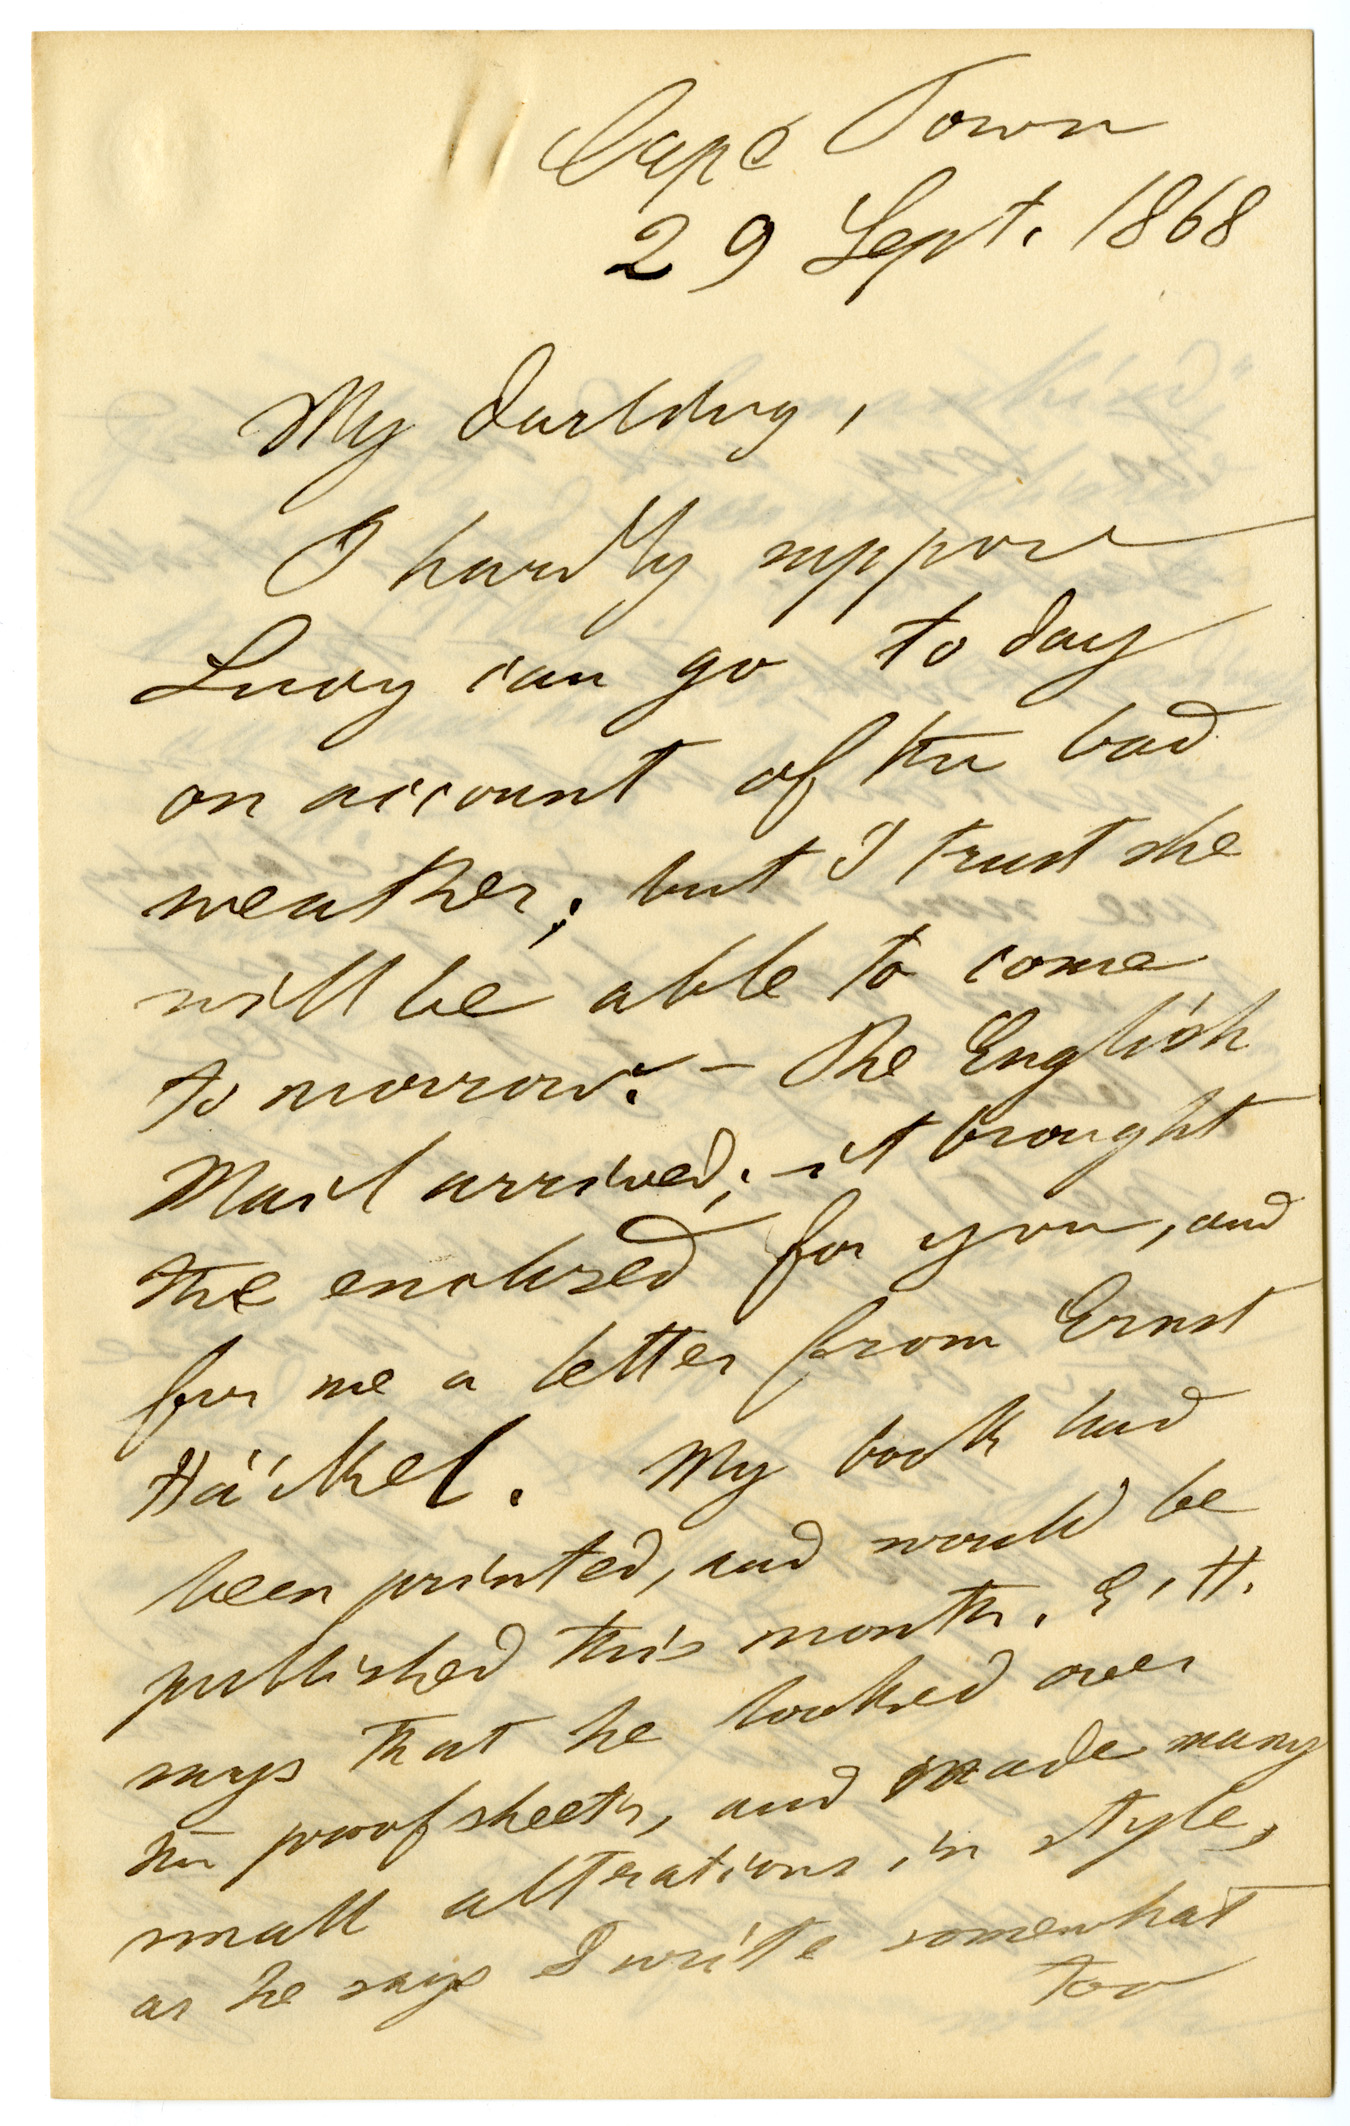 Cape Town
29 Sept. 1868
My darling,
I hardly suppose
Lucy can go to day
on account of the bad
weather; but I trust she
will be able to come
to morrow. – The English
Mail arrived; – it brought
the enclosed for you, and
for me a letter from Ernst
Häckel. My book had
been printed, and would be
published this month. E. H.
says that he looked over
the proofsheets, and made many
small alterations in style,
as he says I write somewhat
too